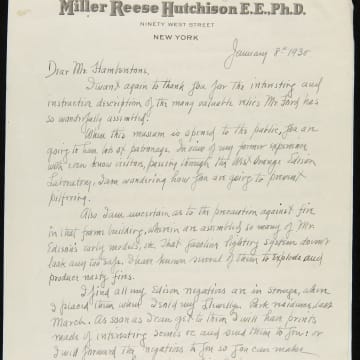 Miller Reese Hutchison E.E., Ph.D.
NINETY WEST STREET
NEW YORK
January 8th 1930
Dear Mr.
I want again to thank you for the interesting and
instructive description of the many valuable relics Mr Ford has
so wonderfully assembled.
When this museum is opened to the public, you are
going to have lots of patronage. In view of my former experience
with even know visitors, passing through the West Orange Edison
Laboratory, I am wondering how you are going to prevent
pilfering.
Also I am uncertain as to the precaution against fire
in that frame building, wherein are assembled so many of Mr
Edison's early models, etc. That gasoline lighting system doesn't
look any too safe. I have known several of them to explode and
produce nasty fires.
I find all my Edison negatives are in storage, where
I placed them when I sold my Park residence, last
March. As soon as I can get to them I will have prints
made of interesting scenes etc and send them to you; or
I will forward the negatives to you so you can make